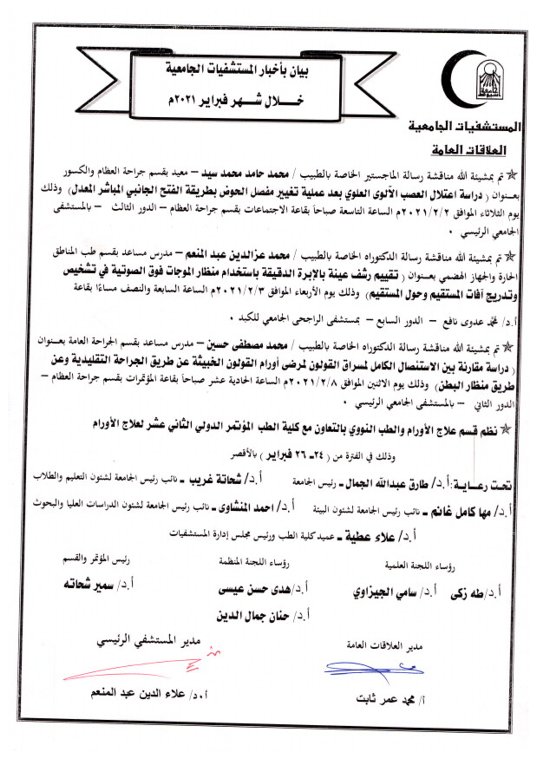 بيان بأخبار المستشفيات الجامعية
خـــلال شـــهر فبراير ٢٠٢١م
المستشفيات الجامعية
العلاقات العامة
تم بمشيئة الله مناقشة رسالة الماجستير الخاصة بالطبيب / محمد حامد محمد سيد – معيد بقسم جراحة العظام والكسور
بعنــوان ( دراسة اعتلال العصب الألوى العلوي بعد عملية تغيير مفصل الحوض بطريقة الفتح الجانبي المباشر المعدل) وذلك
يوم الثلاثاء الموافق ٢٠٢١/٢/٢م الساعة التاسعة صباحاً بقاعة الاجتماعات بقسم جراحة العظام – الدور الثالث – بالمستشفى
الجامعي الرئيسي .
تم بمشيئة الله مناقشة رسالة الدكتوراه الخاصة بالطبيب / محمد عزالدين عبد المنعم – مدرس مساعد بقسم طب المناطق
الحارة والجهاز الهضمي بعنــوان ( تقييم رشف عينة بالإبرة الدقيقة باستخدام منظار الموجات فوق الصوتية في تشخيص
وتدريج آفات المستقيم وحول المستقيم) وذلك يوم الأربعاء الموافق ٢٠٢١/٢/٣م الساعة السابعة والنصف مساءًا بقاعة
أ.د/ محمد عدوى نافع – الدور السابع – بمستشفى الراجحى الجامعي للكبد .
تم بمشيئة الله مناقشة رسالة الدكتوراه الخاصة بالطبيب / محمد مصطفى حسين – مدرس مساعد بقسم الجراحة العامة بعنــوان
( دراسة مقارنة بين الاستئصال الكامل لمسراق القولون لمرضى أورام القولون الخبيثة عن طريق الجراحة التقليدية وعن
طريق منظار البطن) وذلك يوم الاثنين الموافق ٢٠٢١/٢/٨م الساعة الحادية عشر صباحاً بقاعة المؤتمرات بقسم جراحة العظام –
الدور الثاني – بالمستشفى الجامعي الرئيسي .
نظم قسم علاج الأورام والطب النووي بالتعاون مع كلية الطب المؤتمر الدولي الثاني عشر لعلاج الأورام
وذلك في الفترة من (٢٤- ٢٦ فبراير ) بالأقصر
تحت رعــاية: أ.د/ طارق عبدالله الجمال – رئيس الجامعة أ.د/ شحاتة غريب – نائب رئيس الجامعة لشئون التعليم والطلاب
أ.د/ مها كامل غانم – نائب رئيس الجامعة لشئون البيئة أ.د/ احمد المنشاوى – نائب رئيس الجامعة لشئون الدراسات العليا والبحوث
أ.د/ علاء عطية – عميد كلية الطب ورئيس مجلس إدارة المستشفيات
رؤساء اللجنة العلمية رؤساء اللجنة المنظمة رئيس المؤتمر والقسم
أ.د/طه زكى أ.د/ سامي الجيزاوي أ.د/هدى حسن عيسى أ.د/ سمير شحاته
أ.د/ حنان جمال الدين
مدير العلاقات العامة مدير المستشفي الرئيسي
أ/ محمد عمر ثابت أ.د/ علاء الدين عبد المنعم